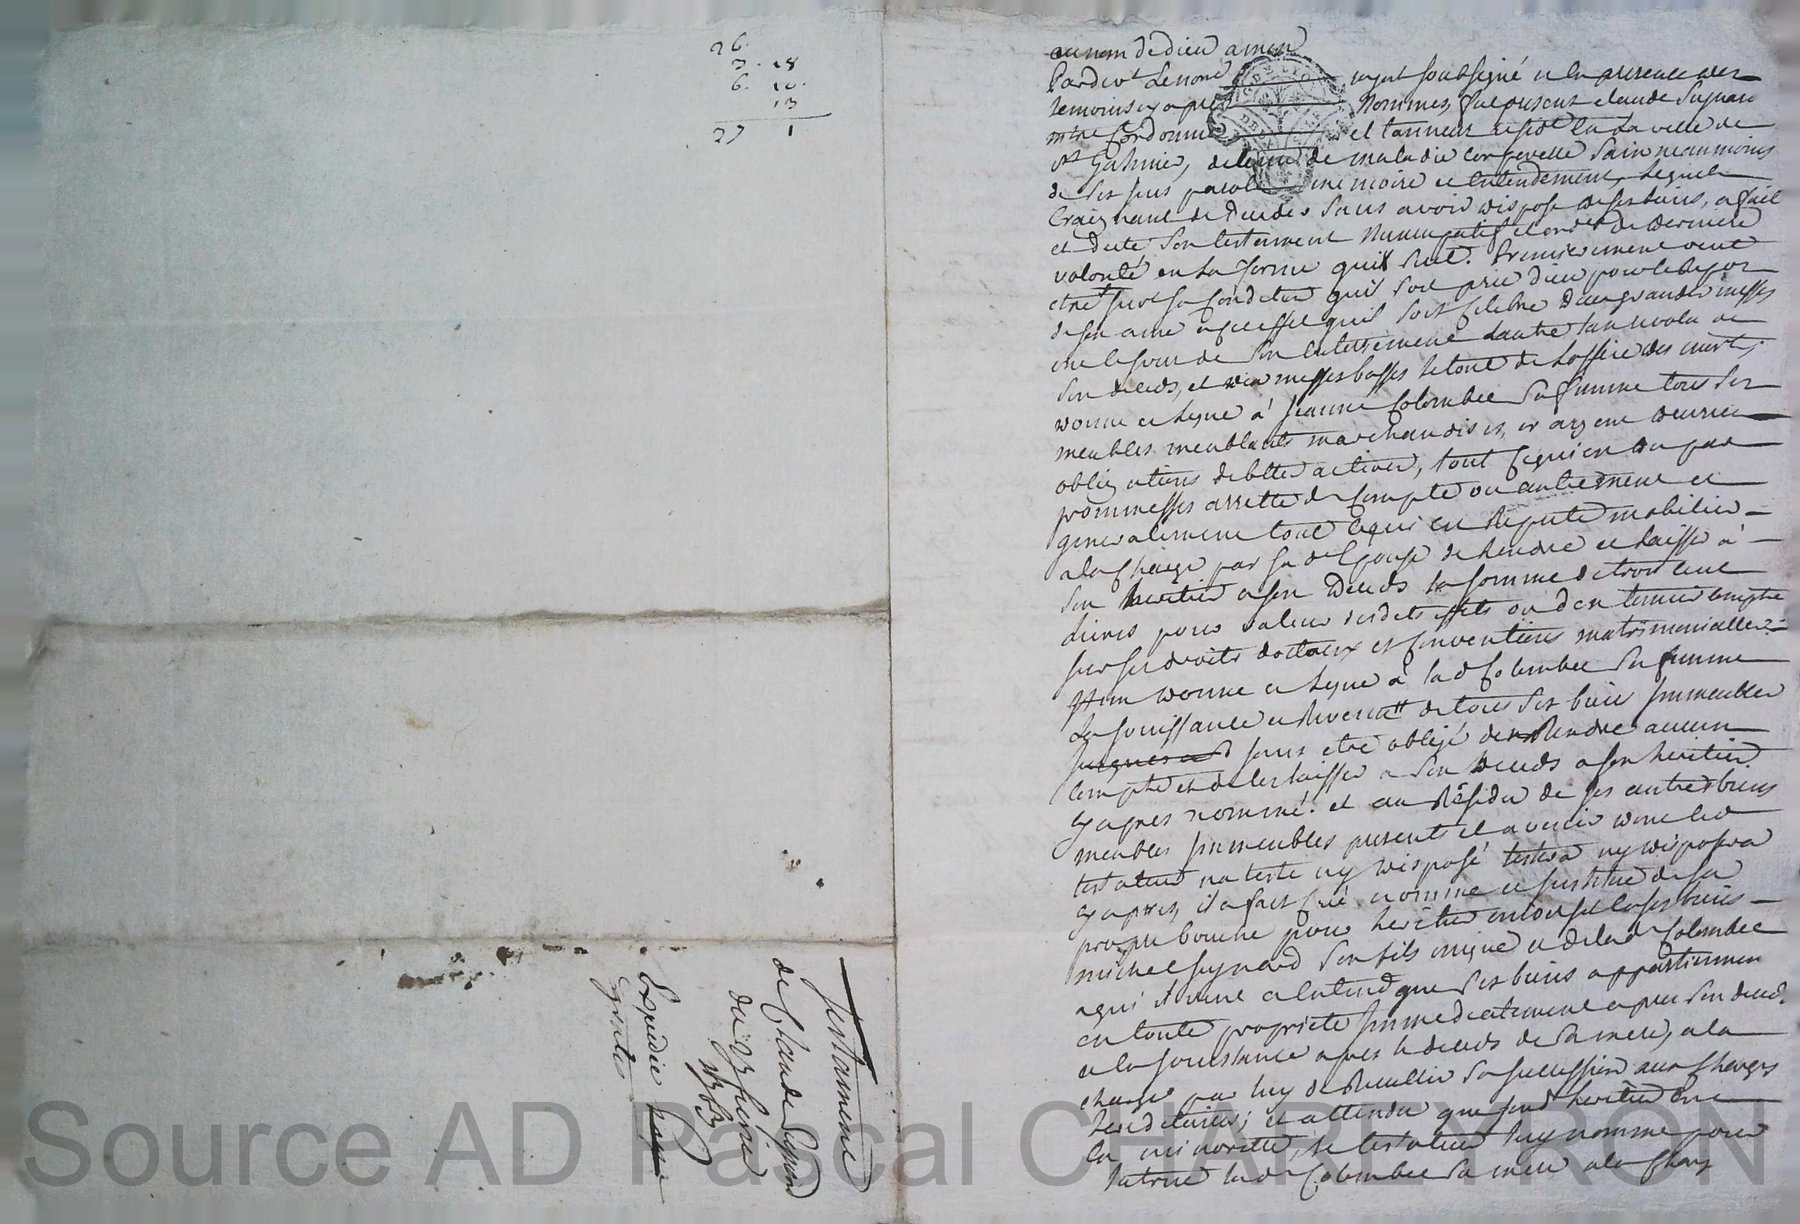 26.
3. 18
6. 10.
13
27 1
Testament
de Claude Signard
du 23 fevrier
1763
Expedié
grate
au nom de dieu amen
Pardevt Le no royal soubsigné et en presence des
temoins cy apres nommes, fut present claude
mtre Cordonnier et tanneur residt en La ville de
st Galmier, detenu de maladie corporelle sain neanmoins
de ses sens parole memoire et entendement, Lequel
craignant de deceder sans avoir dispose de ses biens, a fait
et dicté son testament nuncupatif et ordce de derniere
volonté en La forme quil suit. Premierement veut
et sa condition quil soit prié dieu pour le repos
de son ame a quel effet quil soit celebré deux grandes messes
une le jour de son enterrement Lautre au de
son deceds, et dix messes basses le tout de Loffice des morts,
donne et legue a Jeanne Colombet sa femme tous ses
meubles meublants marchandises, or argent denrées
obligations debtes actives, tout ce qui en du par
promesses arretté de compte ou autrement et
generalement tout ce qui en reputé mobilier
a la charge par sa de Epouse de rendre et laisser a
son heritier a son deceds la somme de trois cent
livres pour valeur desdets effets ou den tenir compte
sur ses droits dotaux et conventions matrimonialles
Item donne et legue a lad Colombet sa femme
La jouissance et de tous ses biens immeubles
sans etre obligé den rendre aucun
compte et de les laisser a son deceds a son heritier
cy apres nommé. et au Residu de ses autres biens
meubles immeubles presents et avenir dont led
testateur na testé ny disposé testera ny disposera
cy apres, il a fait créé nommé et institué de sa
propre bouche pour heritier universel de ses biens
michel signard son fils unique et de lad Colombet
a qui il veut et entend que ses biens appartiennent
en toute propriete immediatement apres son deceds
et la jouissance apres le deceds de sa mere, a la
charge par luy de Recueillir sa succession aux charges
hereditaires; et attendu que sond heritier est
en minorité, le testateur luy nomme pour
tutrice lad Colombet sa mere a la charge
Source AD Pascal CHAPEYRON